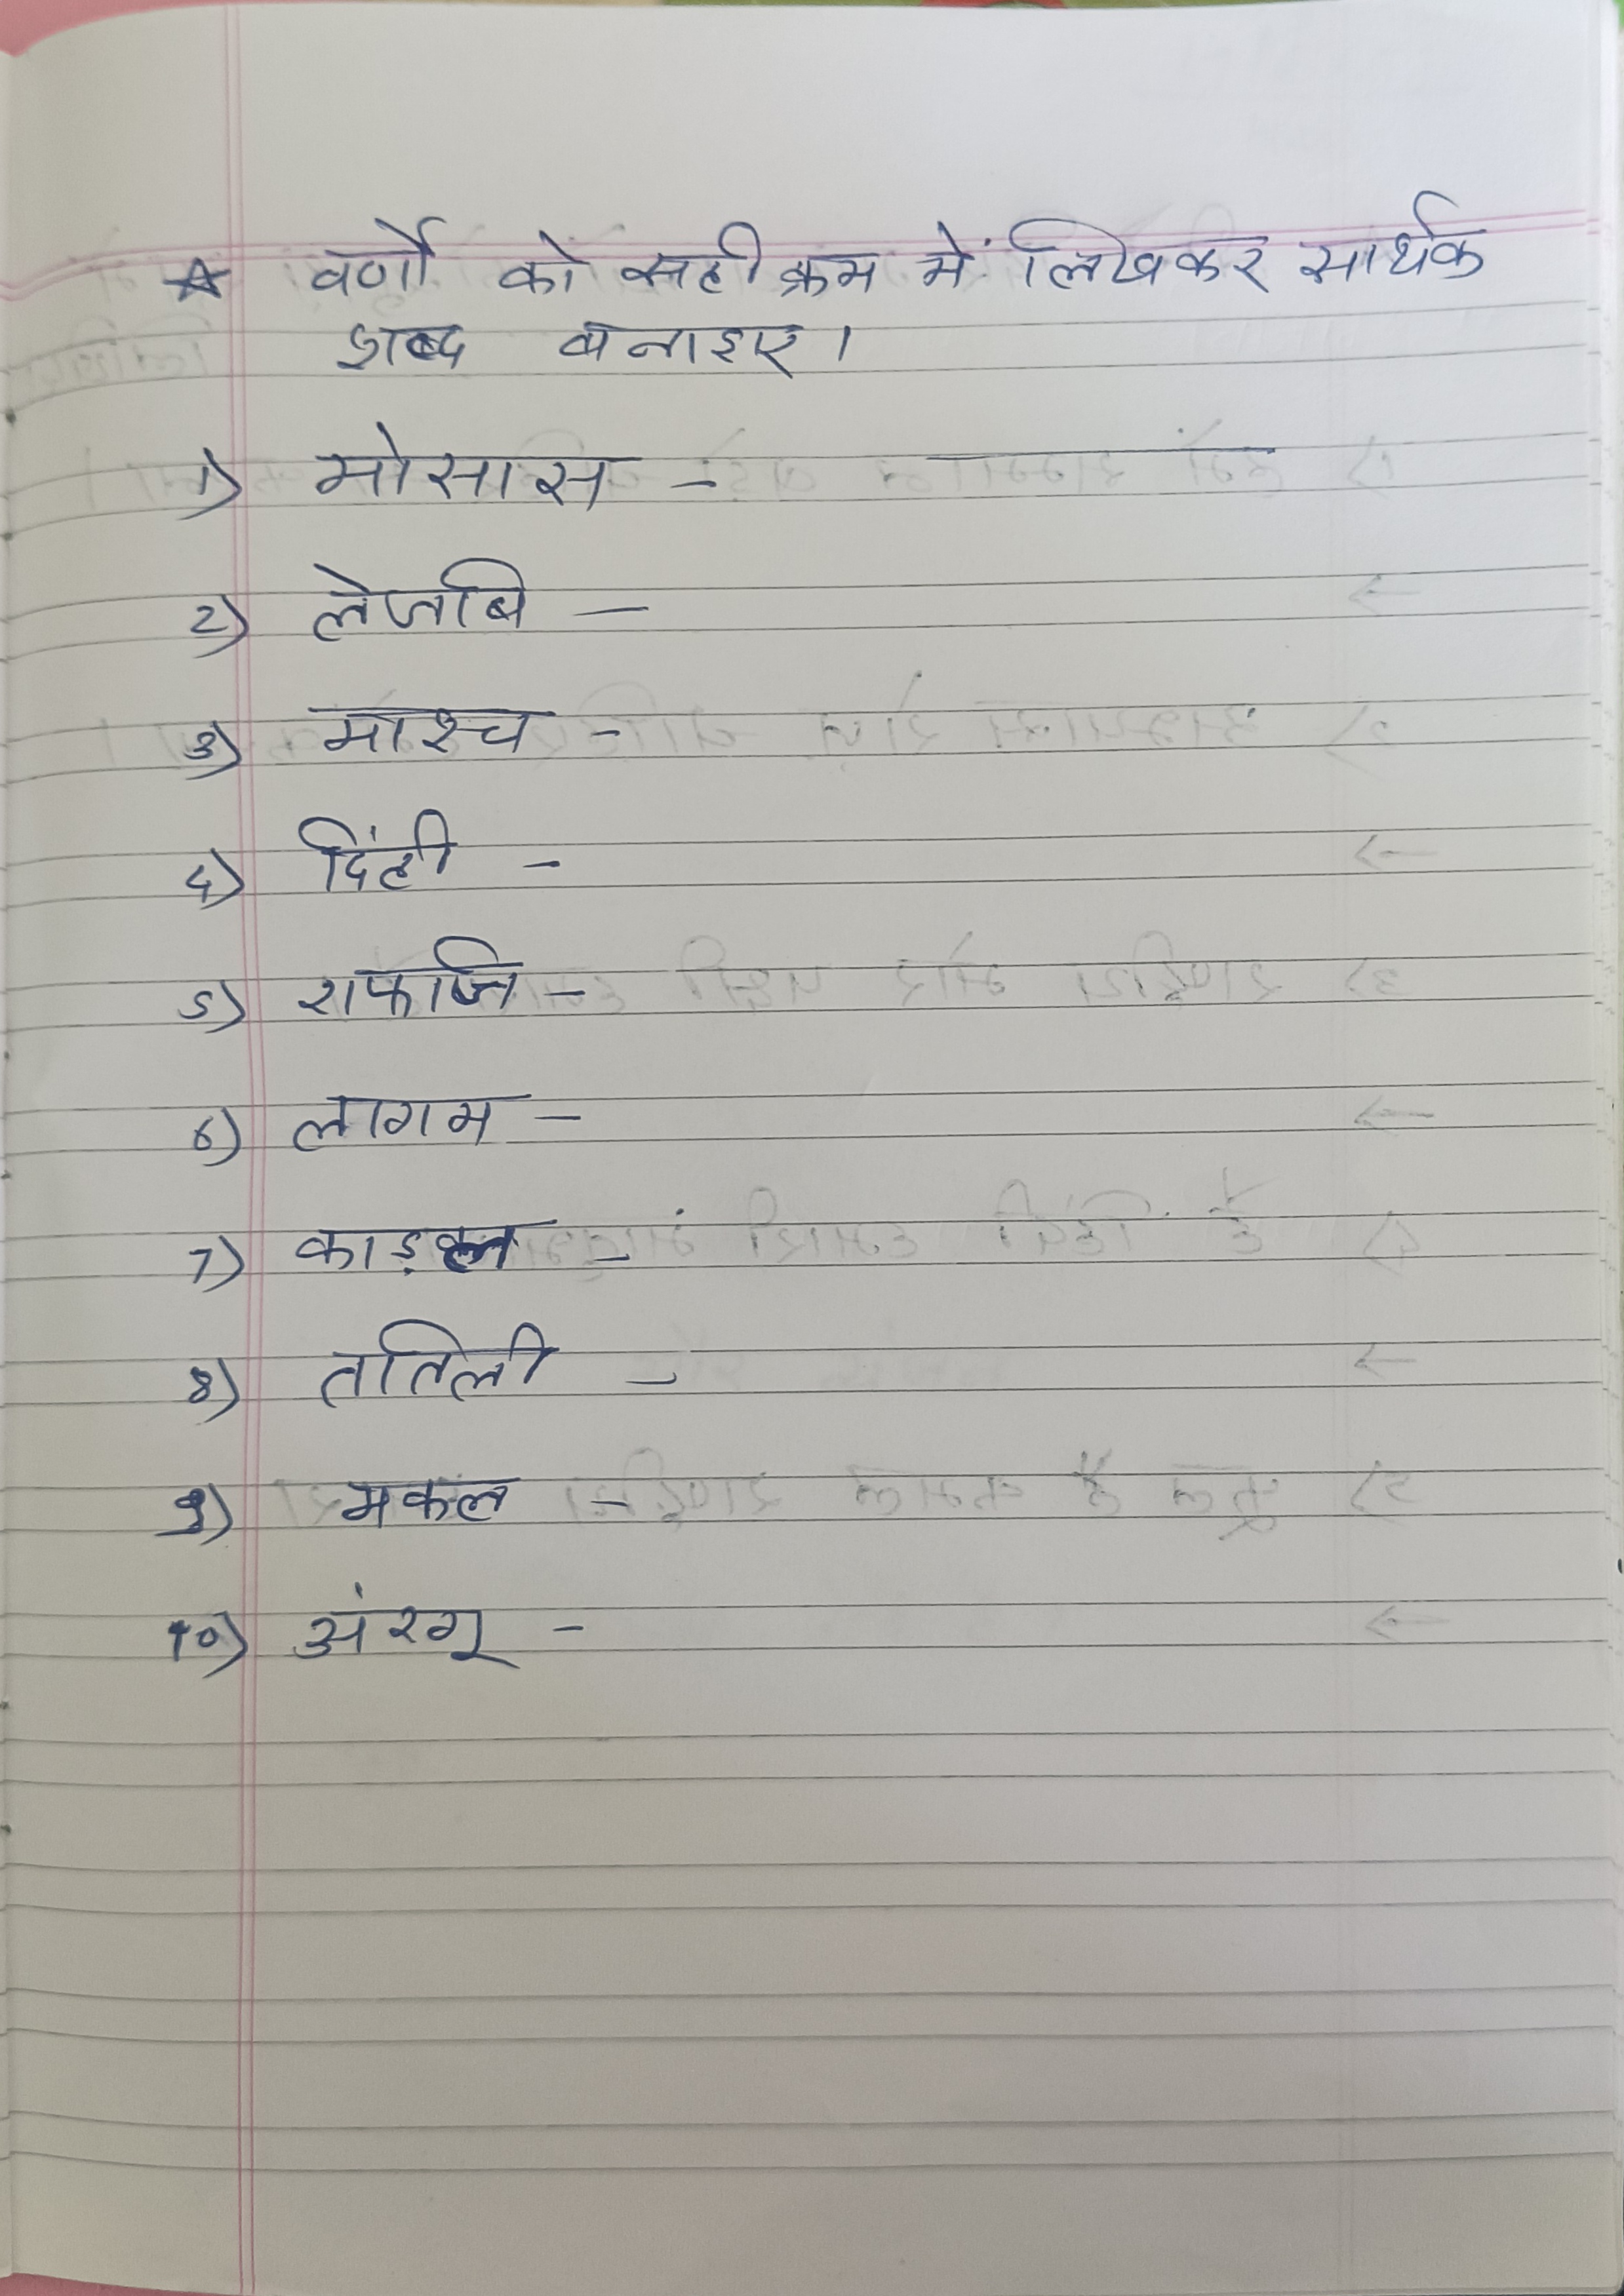 ☆ वर्णों को सही क्रम में लिखकर सार्थक
शब्द बनाइए।
1) मोसास -
2) लेजबि -
3) माश्च -
4) दिंही -
5) राफजि -
6) लागम -
7)
8) ततिली -
9) मकल -
10) अंरगू -